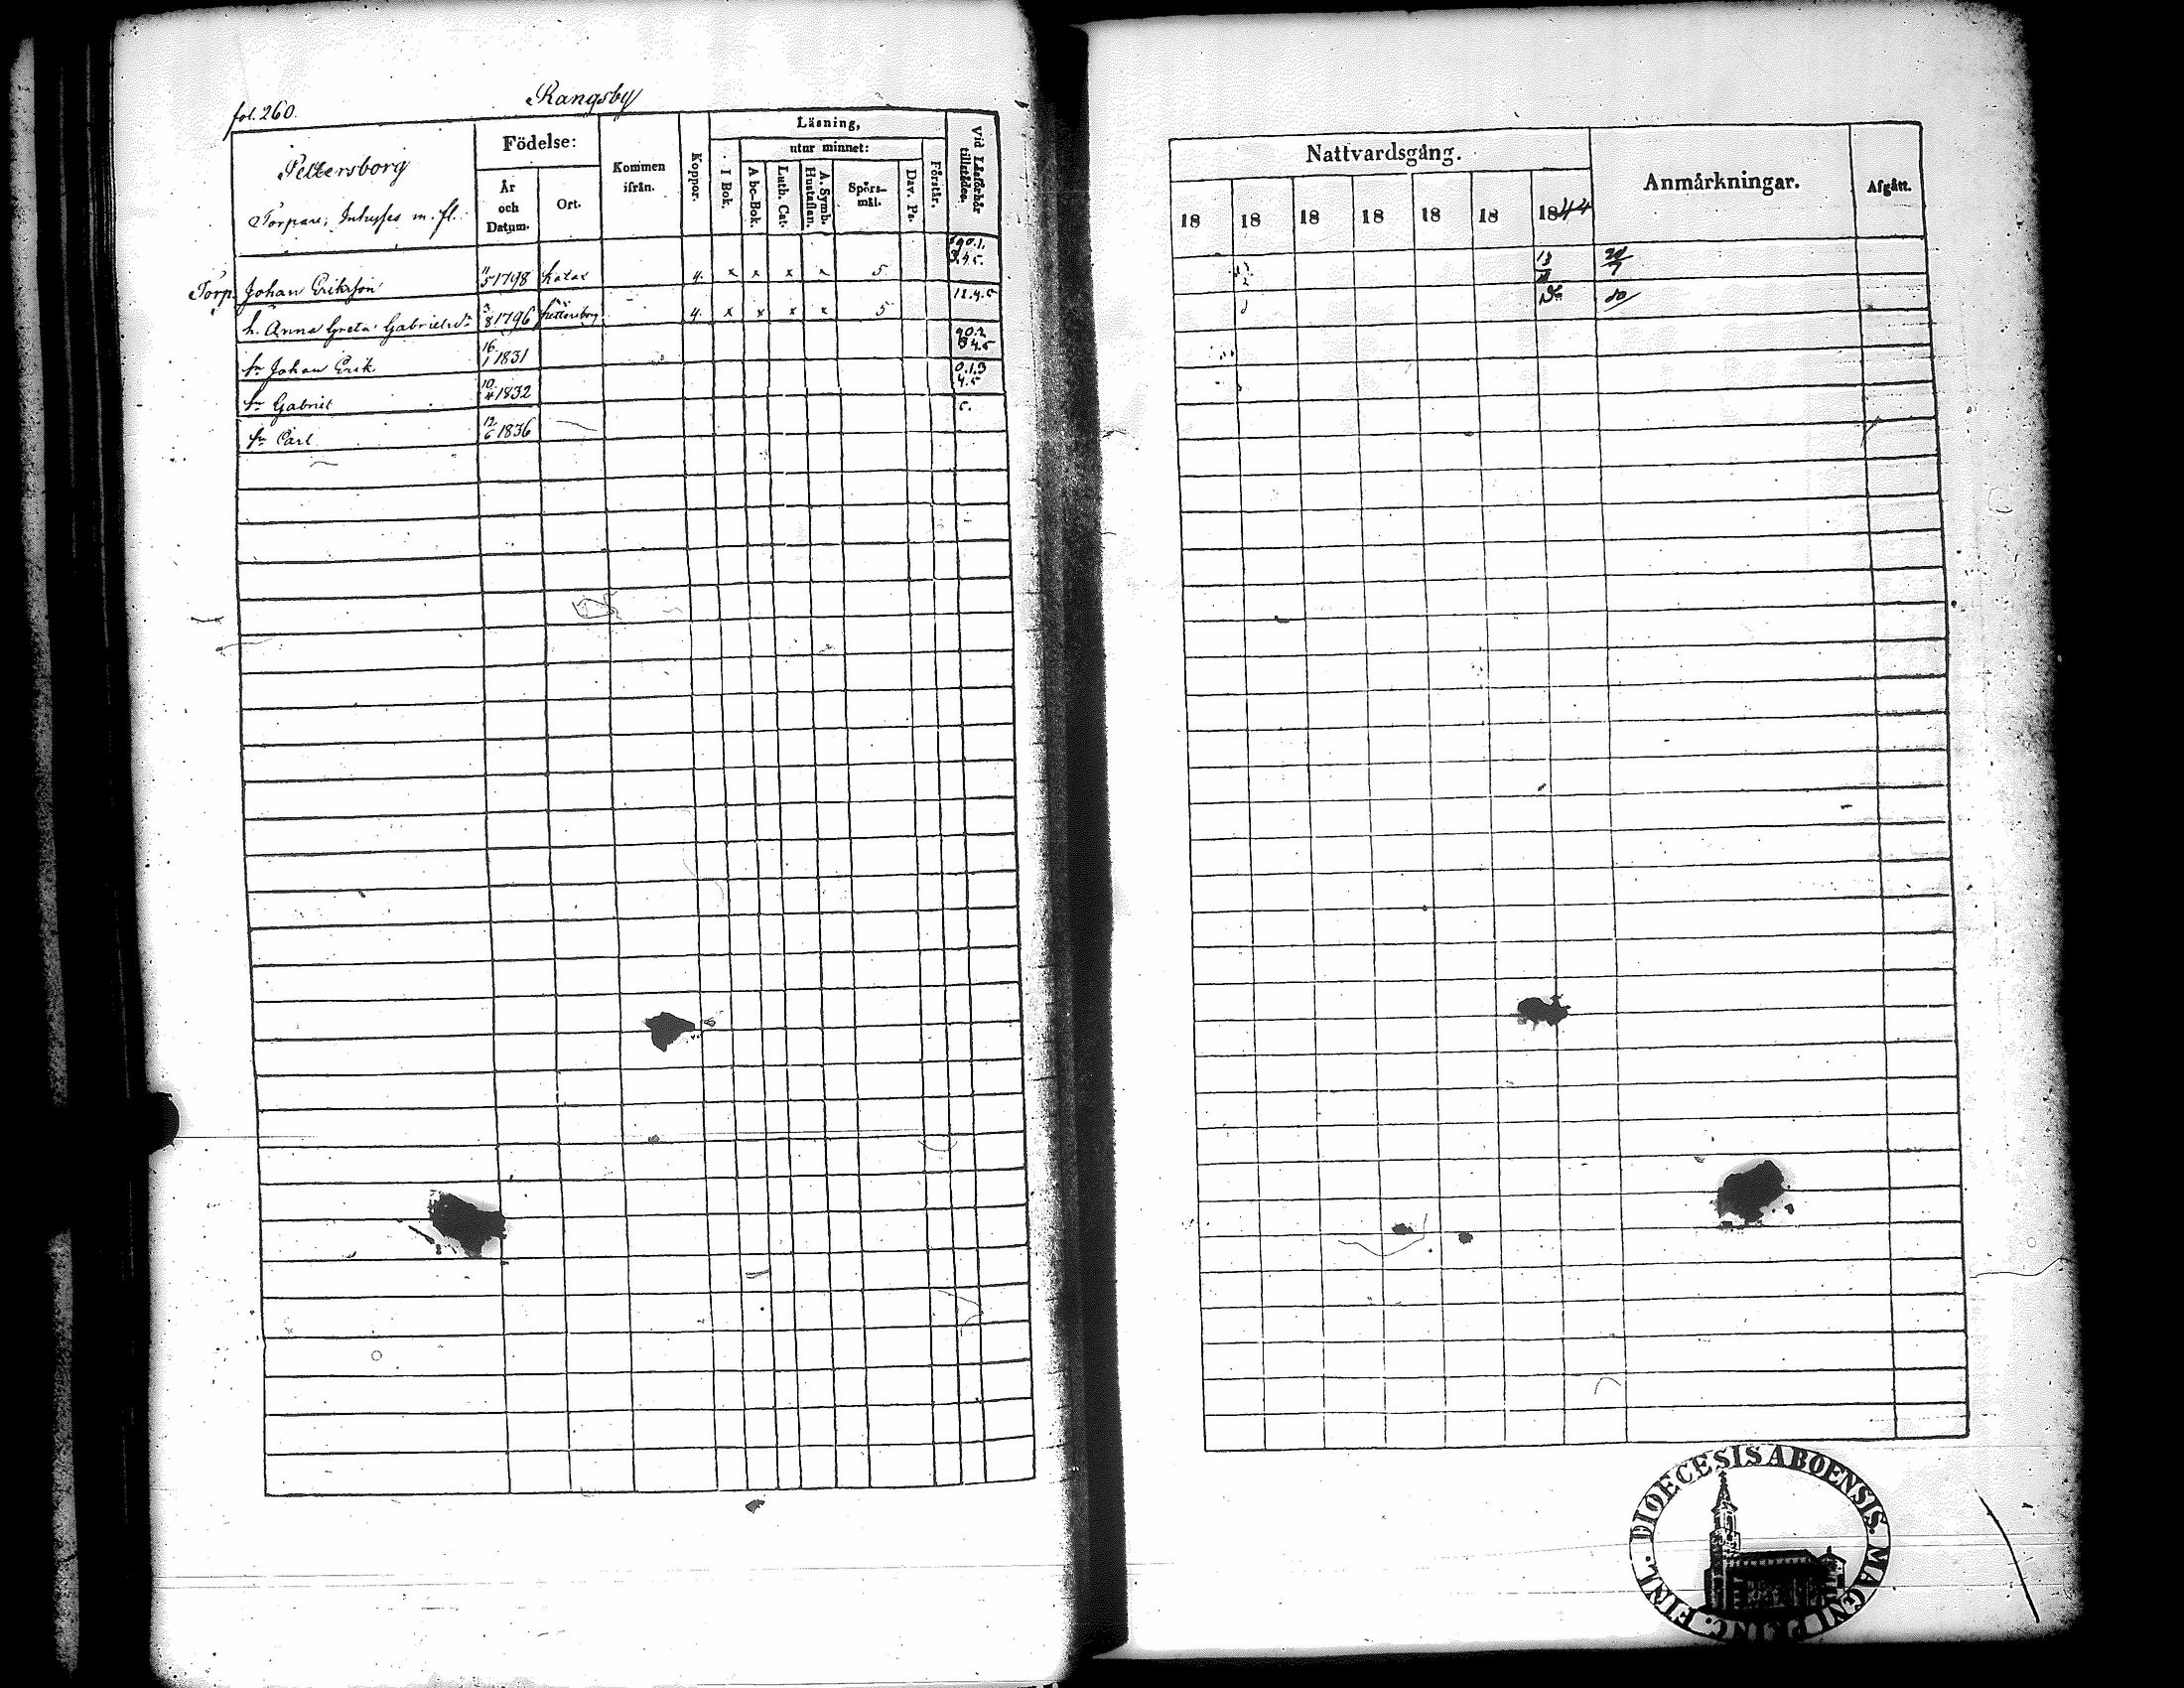 fol. 260.
Rangsby
Pettersborg
Torpare, Inhyses m. fl.
Födelse:
År och Datum.
Ort.
Kommen ifrån.
Koppor.
Läsning,
I Bok.
utur minnet:
A bc-Bok.
Luth. Cat.
A. Symb. Hustaflan.
Spörsmål.
Dav. Ps.
Förstår.
Vid Läsförhör tillstädes.
Torp. Johan Eriksson 11/5 1798 4. x x x x 5
h. Anna Greta Gabrielsdr 3/8 1796 Pettersborg 4. x x x x 5 12.4.5
sr Johan Erik 16/1 1831
sr Gabriel 10/4 1832 0.1.3 4.5
sr Carl 12/6 1836 5.
Nattvardsgång.
18 18 18 18 18 18 1844
Anmärkningar.
Afgått.
DIOECESIS ABOENSIS. MAGNI PRINC. FINL.